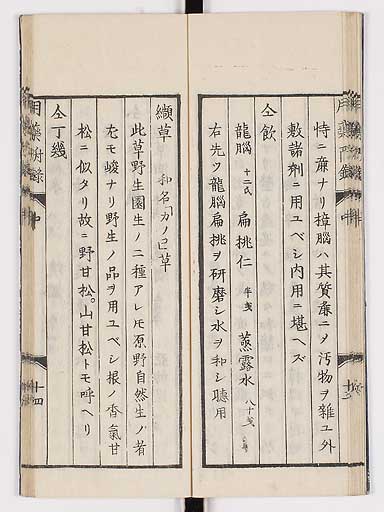 特ニ廉ナリ樟腦ハ其質廉ニ〆汚物ヲ雜ユ外
敷諸劑ニ用ユベシ内用ニ堪ヘズ
仝飲
龍腦 十二氏 扁挑仁 半戔 蒸露水 八十戔
右先ツ龍腦扁挑ヲ研磨シ水ヲ和シ聴用
纈草 和名「カノコ」草
此草野生園生ノ二種アレ𪜈原野自然生ノ者
尤モ峻ナリ野生ノ品ヲ用ユベシ根ノ香氣甘
松ニ似タリ故ニ野甘松。山甘松トモ呼ヘリ
仝丁幾
十四